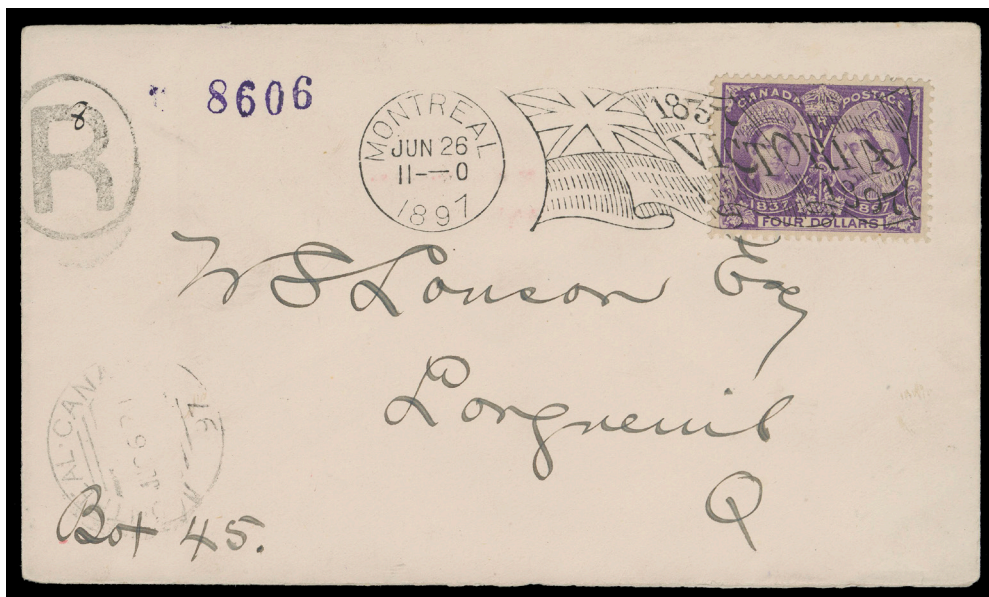 R
8
8606
MONTREAL
JUN 26
11-—0
1897
1837
VICTORIA
CANADA POSTAGE
1837 1897
FOUR DOLLARS
W S Lonson Esq
Longueuil
Q
AL·CANA
97
Box 45.